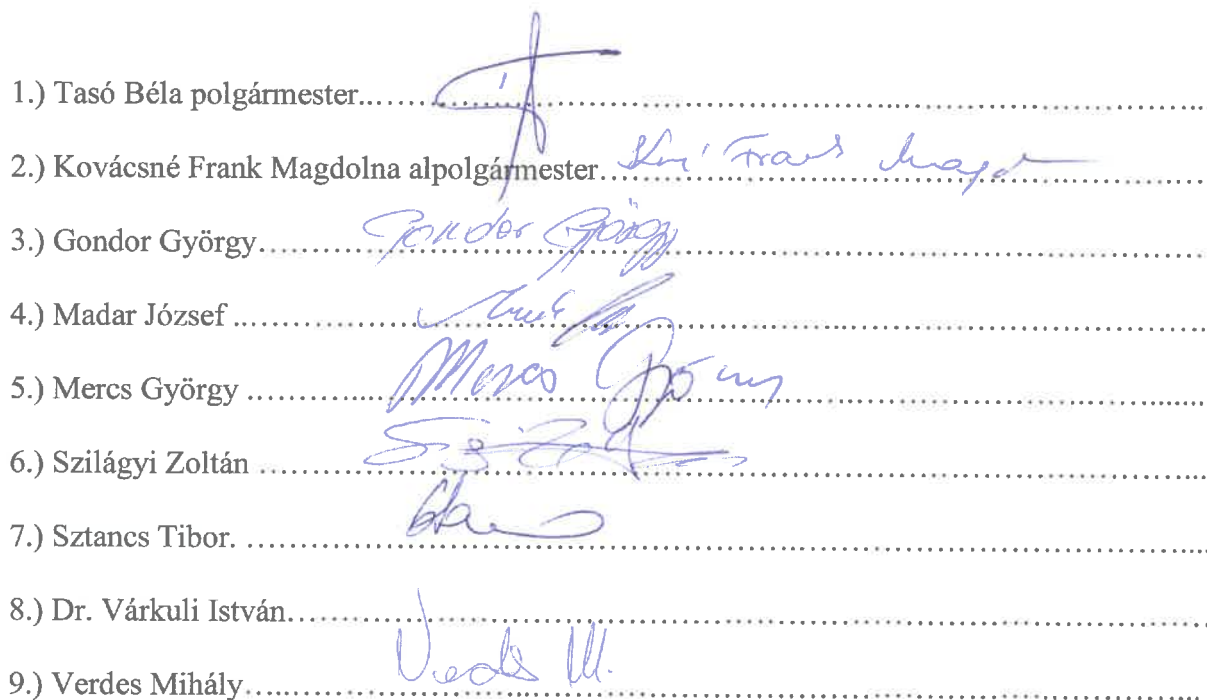 1.) Tasó Béla polgármester...............................................................................................
2.) Kovácsné Frank Magdolna alpolgármester. Kné Frank Magd
3.) Gondor György.................. Gondor György ..................................................
4.) Madar József ...............................................................................................
5.) Mercs György .................. Mercs György ..................................................
6.) Szilágyi Zoltán ...............................................................................................
7.) Sztancs Tibor. ...............................................................................................
8.) Dr. Várkuli István...............................................................................................
9.) Verdes Mihály.................. Verdes M. ..................................................